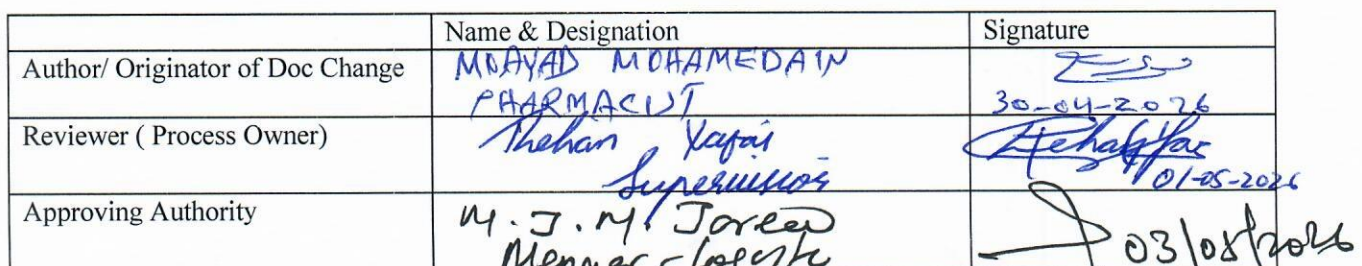 Name & Designation Signature
Author/ Originator of Doc Change MOAYAD MOHAMEDAIN
PHARMACIST 30-04-2026
Reviewer ( Process Owner) Thehan
Supervisor 01-05-2026
Approving Authority M. J. M.
03/05/2026